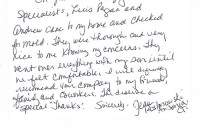 Specialists, Luis Pagan and
Andrew came to my home and checked
for mold. They were thorough and very
nice to me knowing my concerns. They
went over everything with my son until
he felt comfortable. I will
recommend your company to my friends,
family and coworkers. You deserve a
special "Thanks". Sincerely,